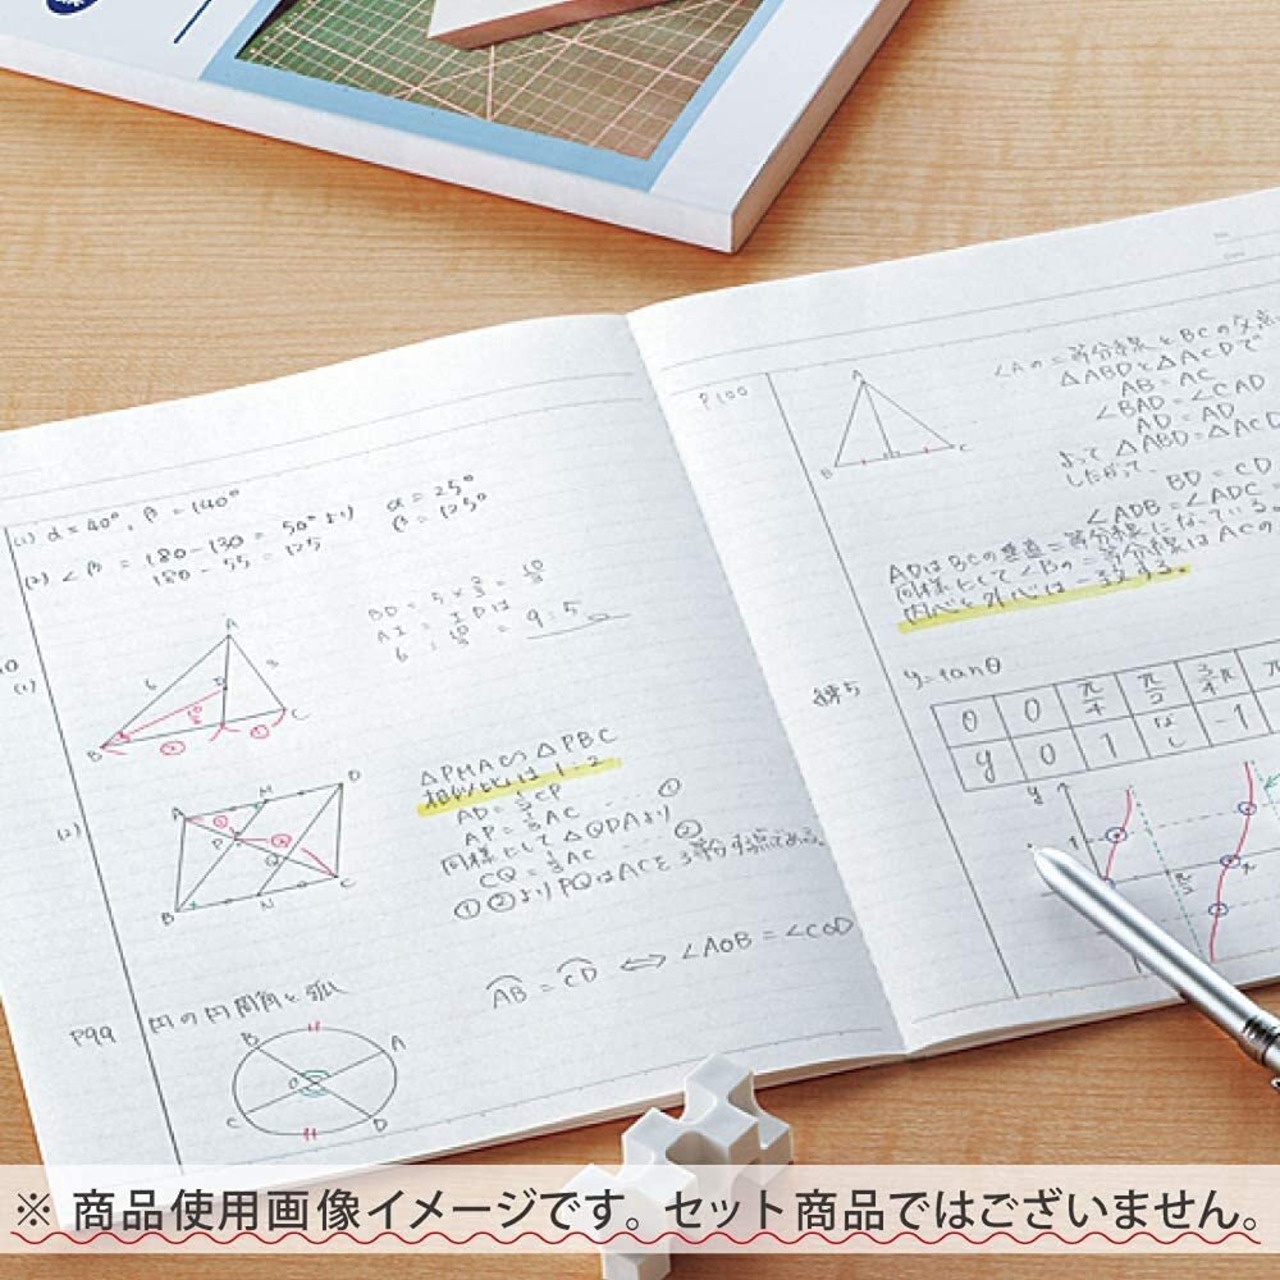 (1) α=40°, β=140°
(2) ∠β = 180-130 = 50°より α=25°
180-55=125 β=125°
(1)
A
6
3
I
B
C
②
①
BD = 5×
AI = IDは
= 9:5
(2)
A
M
D
P
Q
B
N
C
△PMA∽△PBC
相似比は1:2
AP=1/3AC … ①
同様にして△QDAより
CQ=1/3AC … ②
①②よりPQはACを3等分する点である。
⌒AB = ⌒CD ⇔ ∠AOB=∠COD
P99
円の円周角と弧
B
A
O
C
D
P100
A
B
C
∠Aの二等分線とBCの交点
△ABDと△ACDで
AB=AC
∠BAD=∠CAD
AD=AD
よって△ABD=△ACD
したがって、
BD=CD
∠ADB=∠ADC
ADはBCの垂直二等分線になっている。
同様にして∠Bの二等分線はACの
内心と外心は一致する。
練5
y=tanθ
θ 0 π/4 π/2 3/4π π
y 0 1 なし -1
y
1
π/2
π
※ 商品使用画像イメージです。セット商品ではございません。